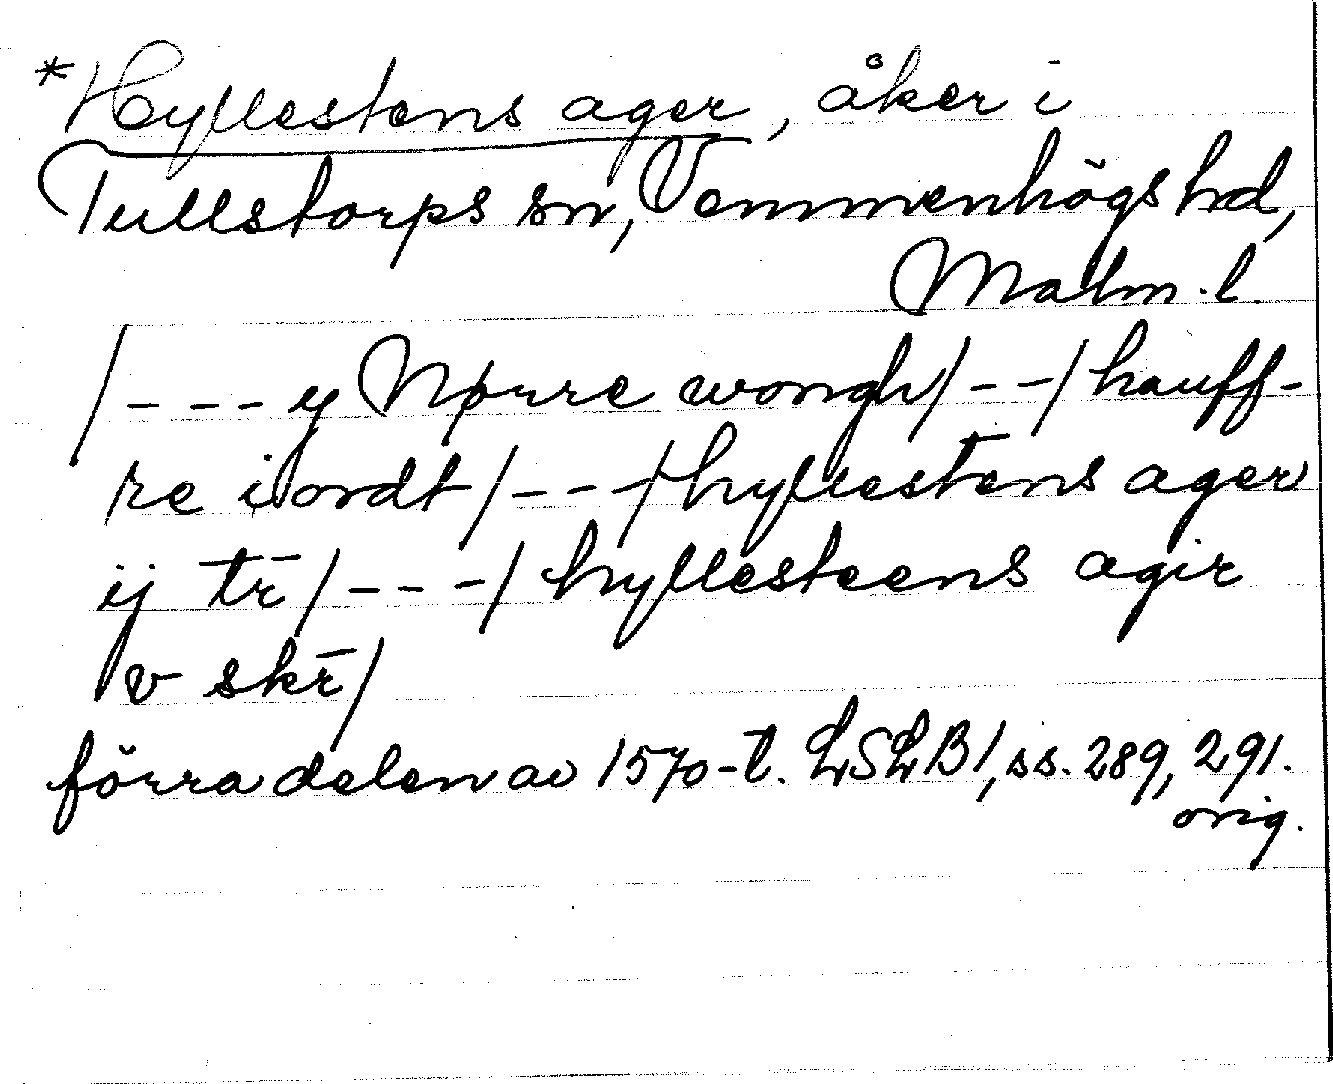 *Hyllestens ager, åker i
Tullstorps sn, Vemmenhögs hd,
Malm.l.
/---y Nørre wongh/--/hauff-
re iordt/---/hyllestens ager
ij tr̄/---/hyllesteens agir
v skr̄/
förra delen av 1570-t. LSLB1, ss. 289, 291.
orig.